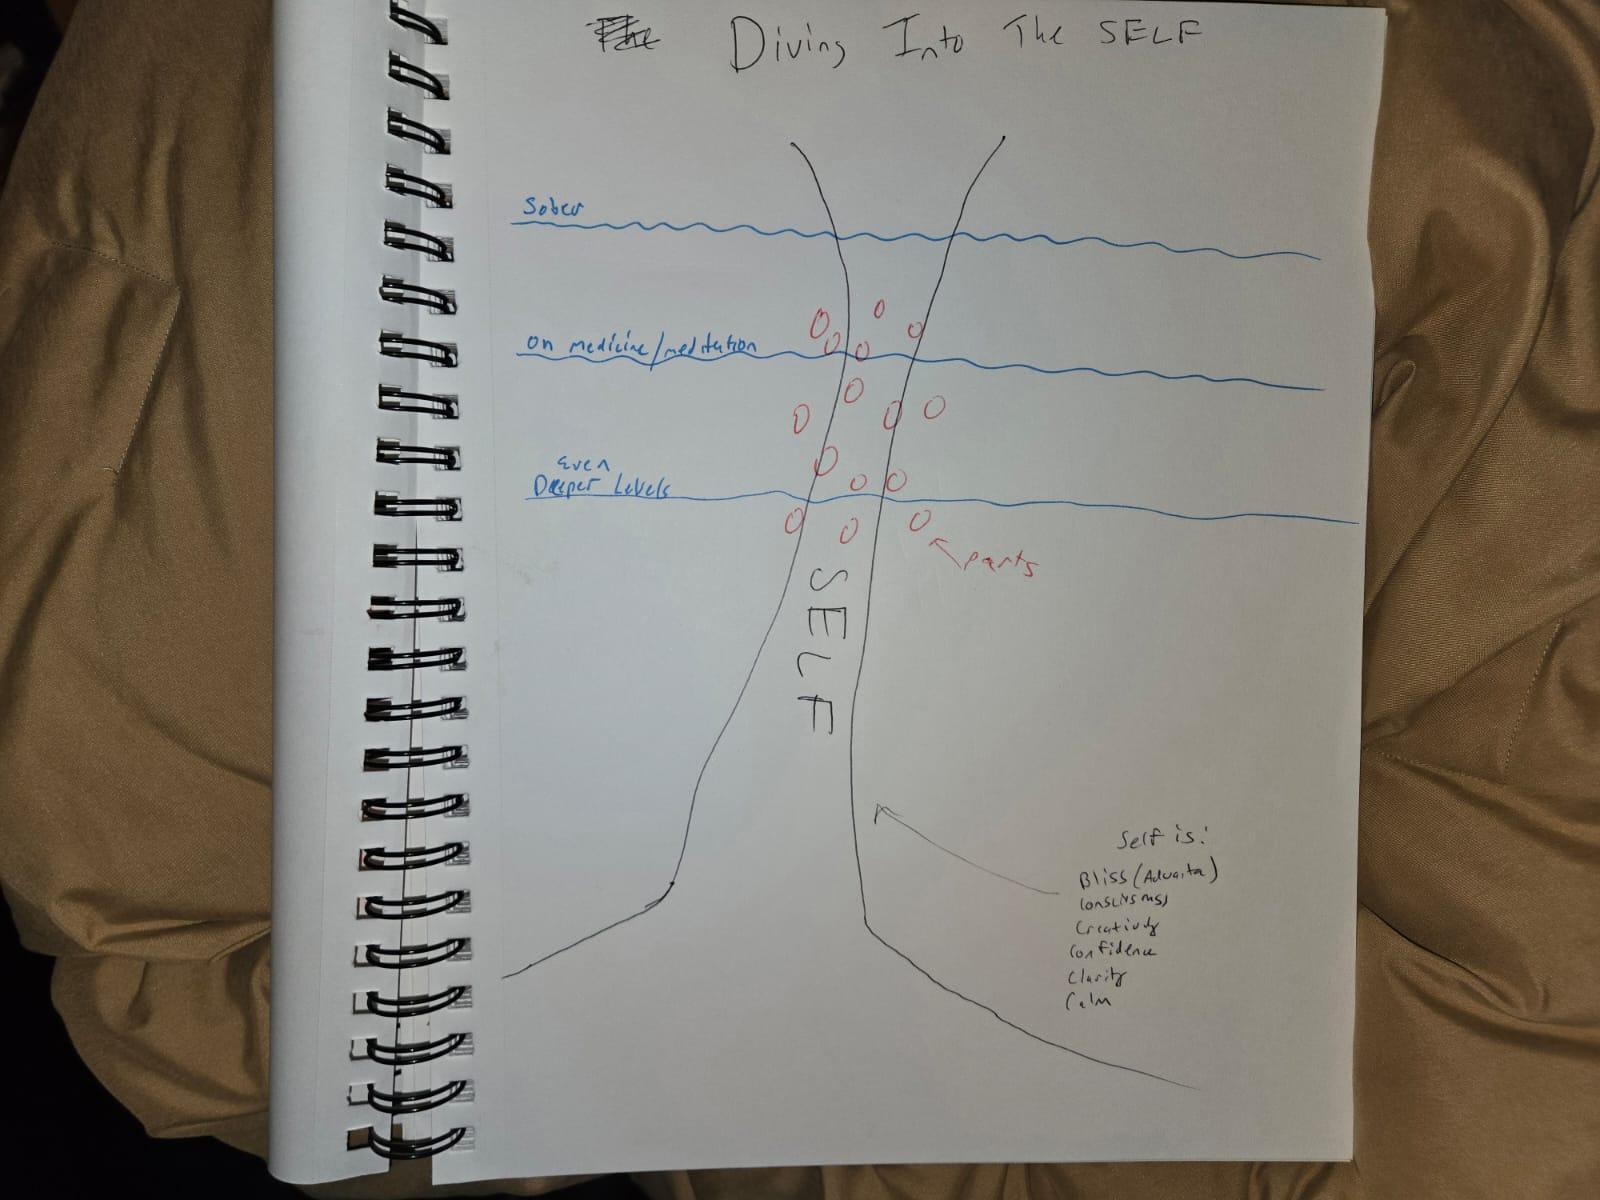 The Diving Into The SELF
Sober
On medicine/meditation
Even
Deeper Levels
parts
SELF
Self is:
Bliss (Advaita)
Creativity
Confidence
Clarity
Calm